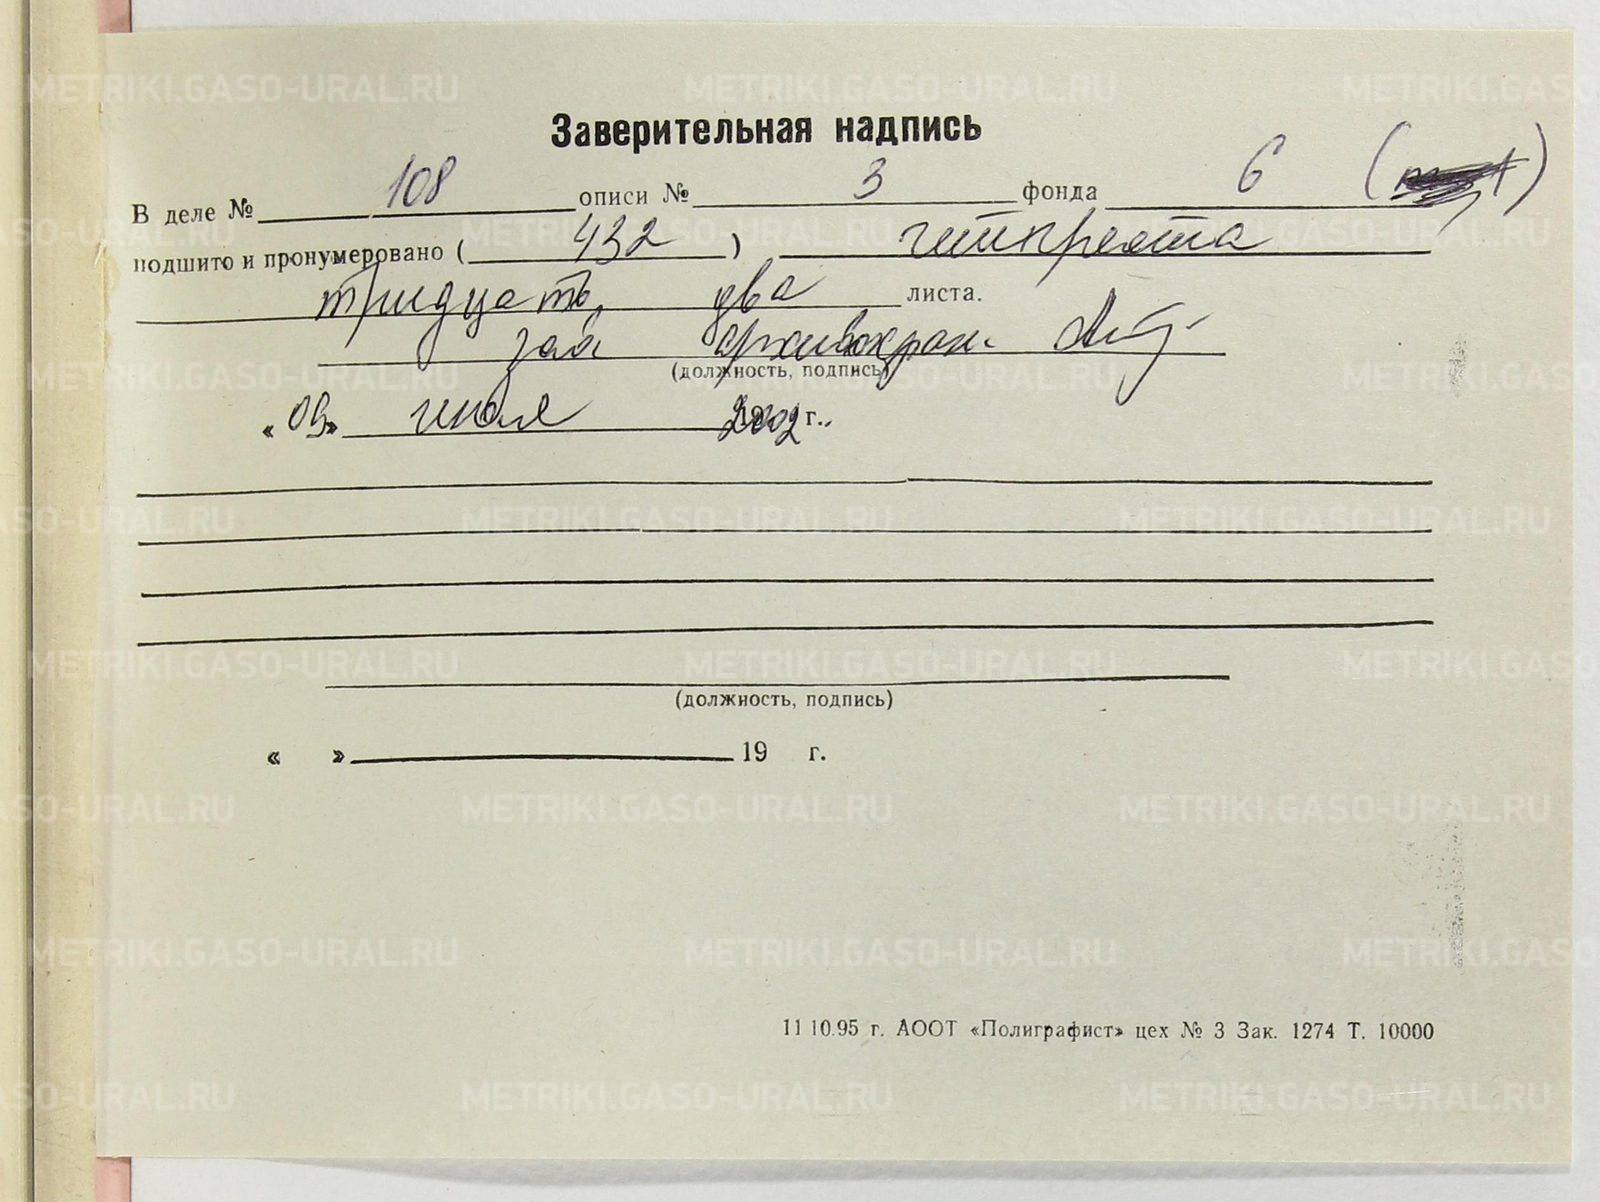 Заверительная надпись
В деле № 108 описи № 3 фонда 6 ( )
подшито и пронумеровано ( 432 ) четыреста
тридцать два листа.
зав архивохран.
(должность, подпись)
« 09 » июля 2002 г.
(должность, подпись)
« » 19 г.
11 10.95 г. АООТ «Полиграфист» цех № 3 Зак. 1274 Т. 10000
METRIKI.GASO-URAL.RU